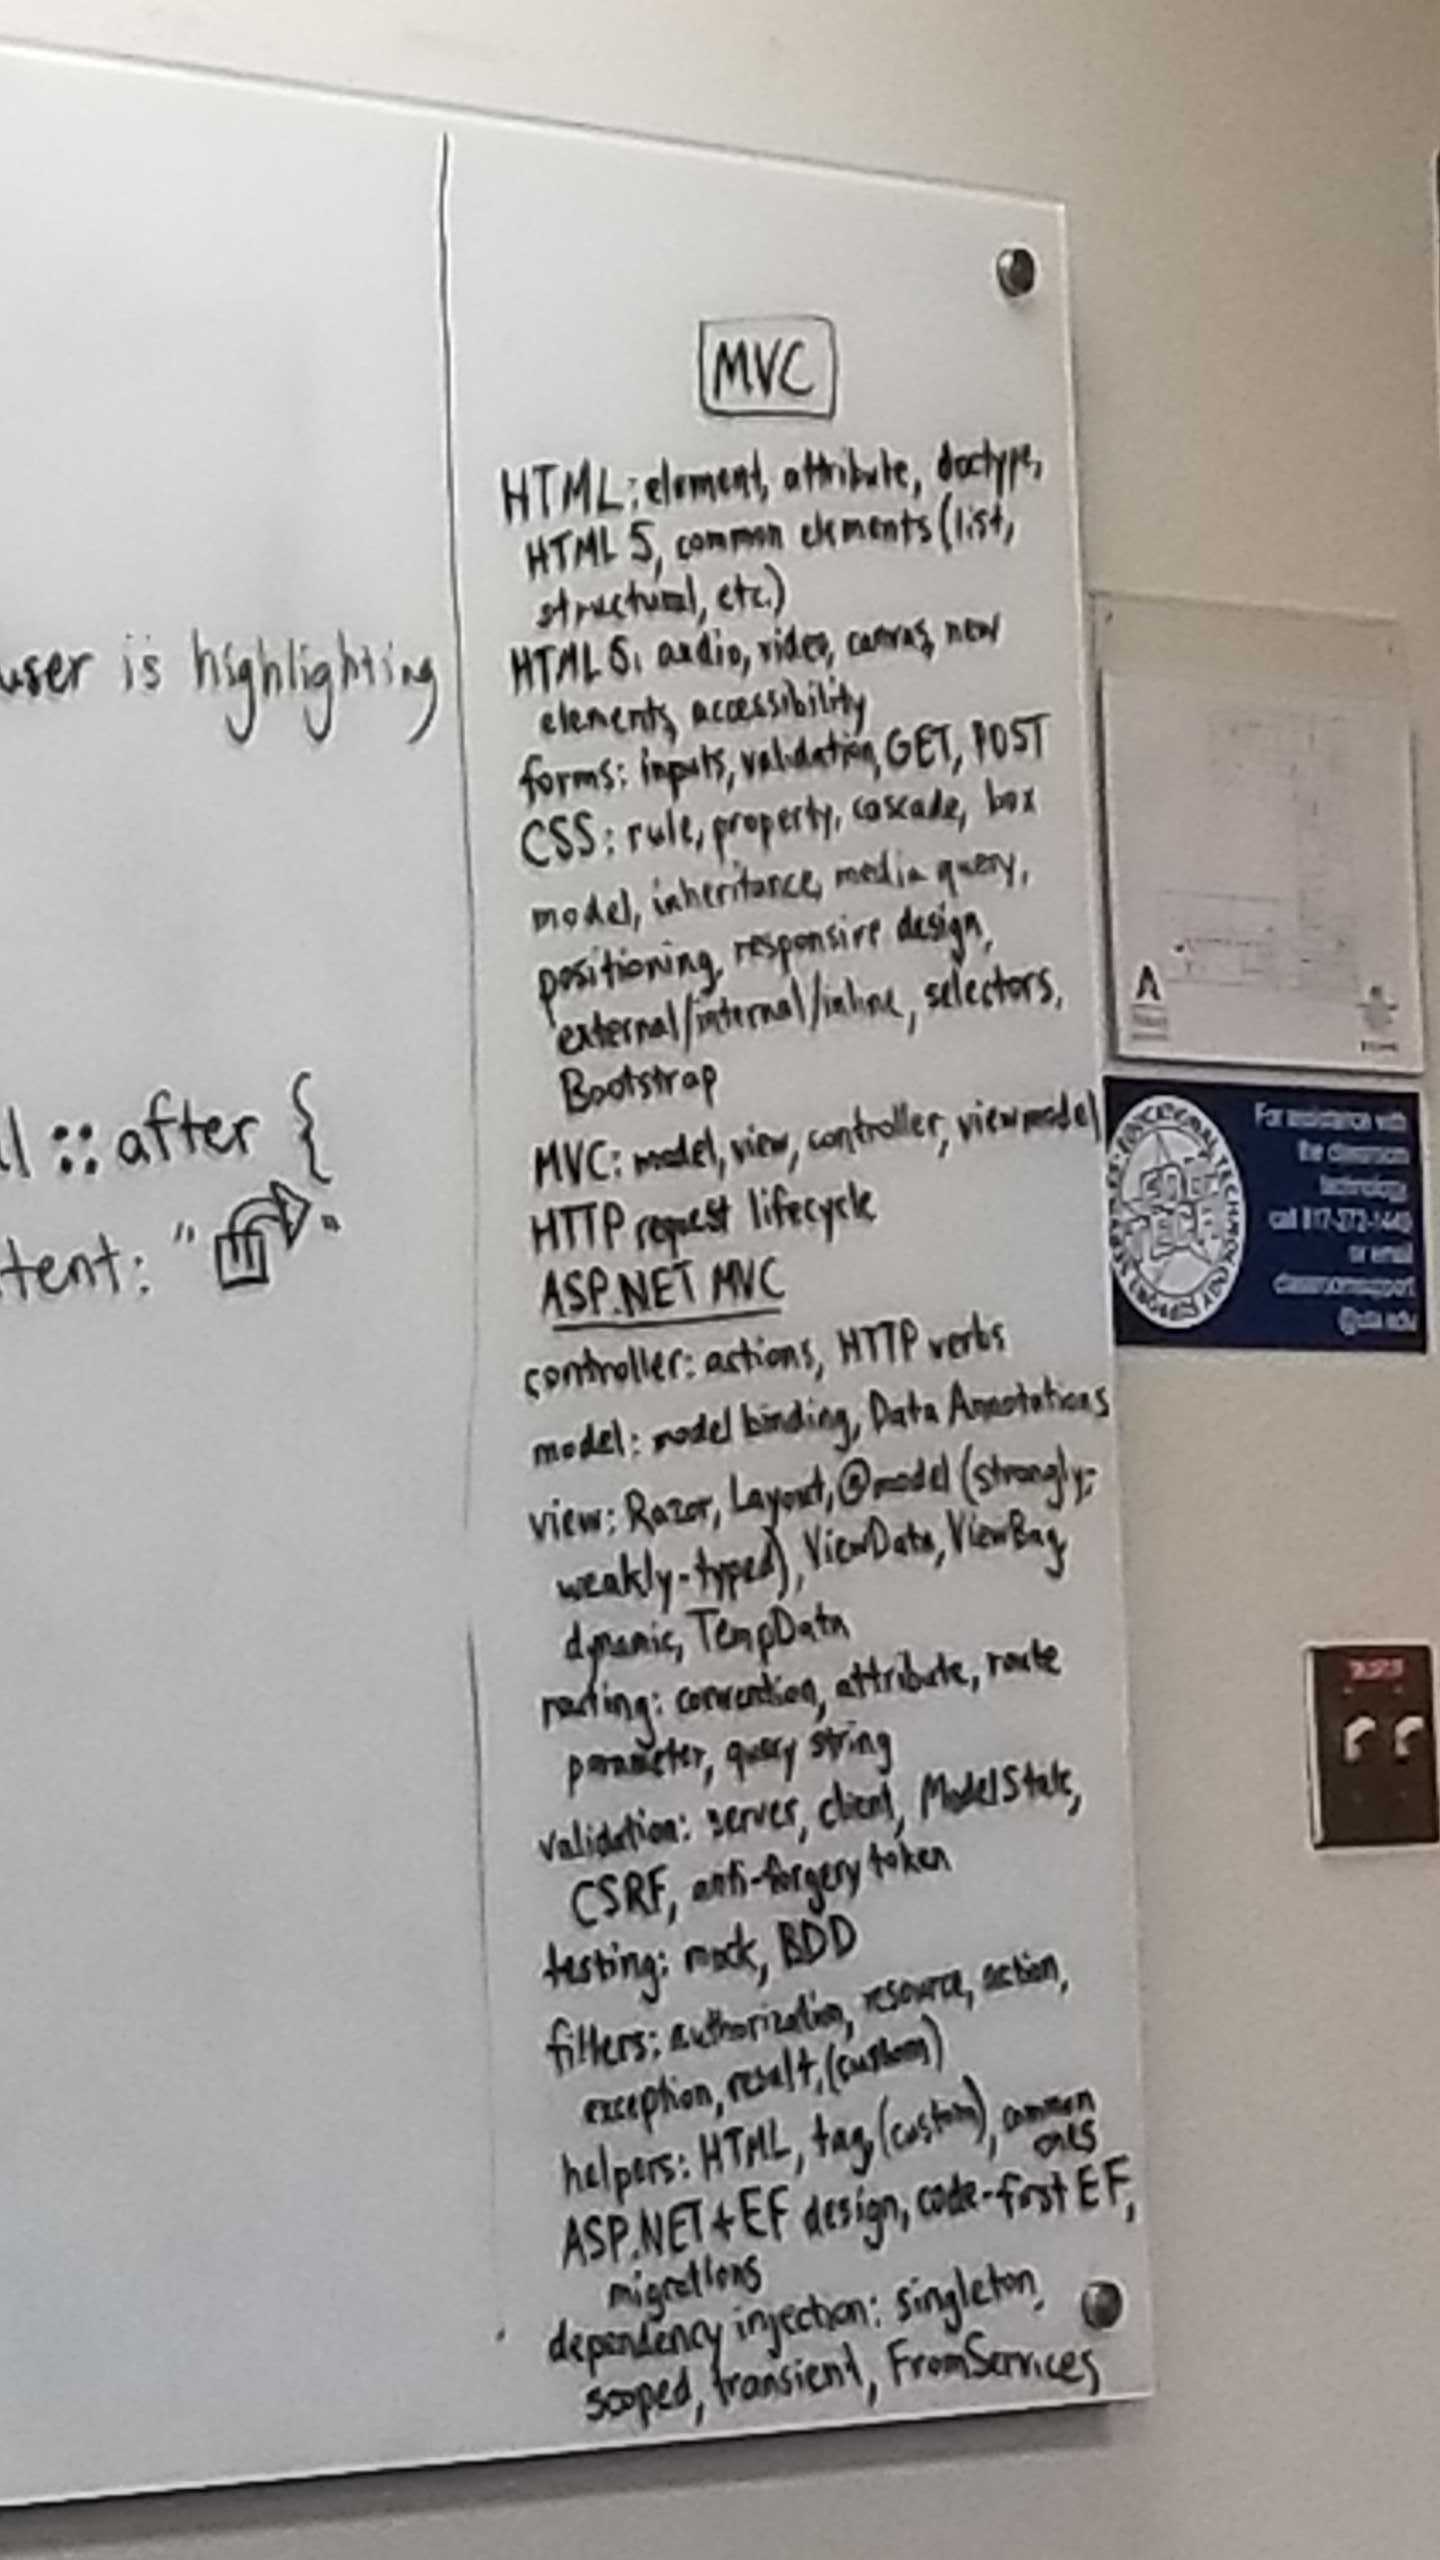 user is highlighting
::after {
tent: "
"
MVC
HTML: element, attribute, doctype,
HTML 5, common elements (list,
structural, etc.)
HTML 5: audio, video, canvas, new
elements, accessibility
forms: inputs, validation, GET, POST
CSS: rule, property, cascade, box
model, inheritance, media query,
positioning, responsive design,
external/internal/inline, selectors,
Bootstrap
MVC: model, view, controller, viewmodel
HTTP request lifecycle
ASP.NET MVC
controller: actions, HTTP verbs
model: model binding, Data Annotations
view: Razor, Layout, @model (strongly-;
weakly-typed), ViewData, ViewBag,
dynamic, TempData
routing: convention, attribute, route
parameter, query string
validation: server, client, ModelState,
CSRF, anti-forgery token
testing: mock, BDD
filters: authorization, resource, action,
exception, result, (custom)
helpers: HTML, tag, (custom), common
ones
ASP.NET + EF design, code-first EF,
migrations
dependency injection: singleton,
scoped, transient, FromServices,
For assistance with
the classroom
technology,
call 817-272-1440
or email
classroomsupport
@uta.edu
EDUCATIONAL TECHNOLOGY
EDU
TECH
A